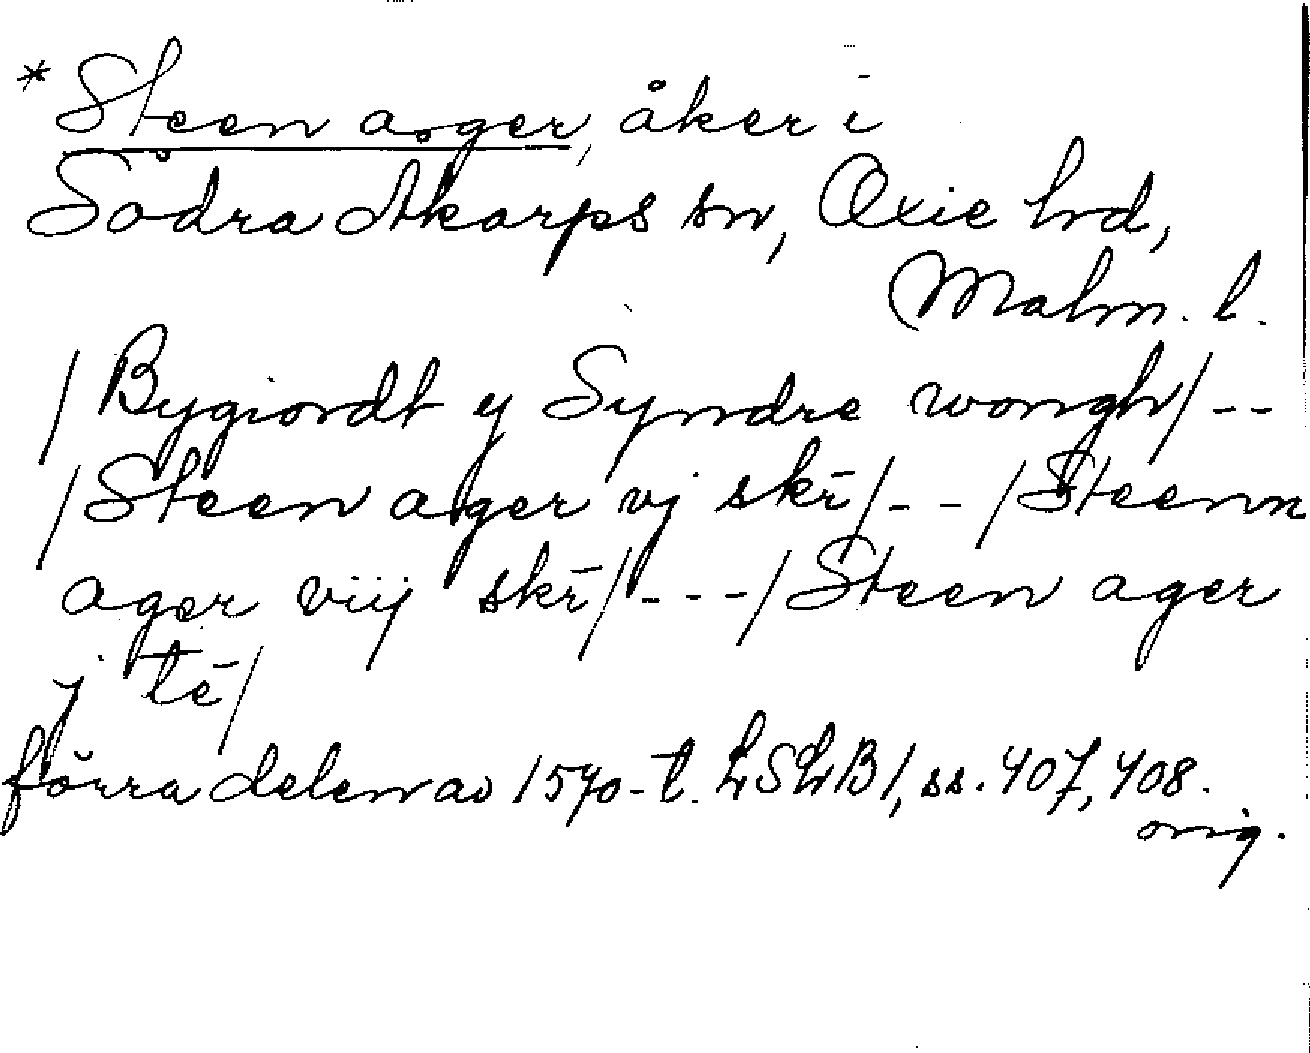 *Steen ager, åker i
Södra Åkarps sn, Oxie hd,
Malm. l.
/Bygiordt ij Syndre wongh/--
/Steen ager vj skr̄/--/Steenn
ager viij skr̄/---/Steen ager
j tē/
förra delen av 1570-t. LSLB1, ss. 407, 408.
orig.